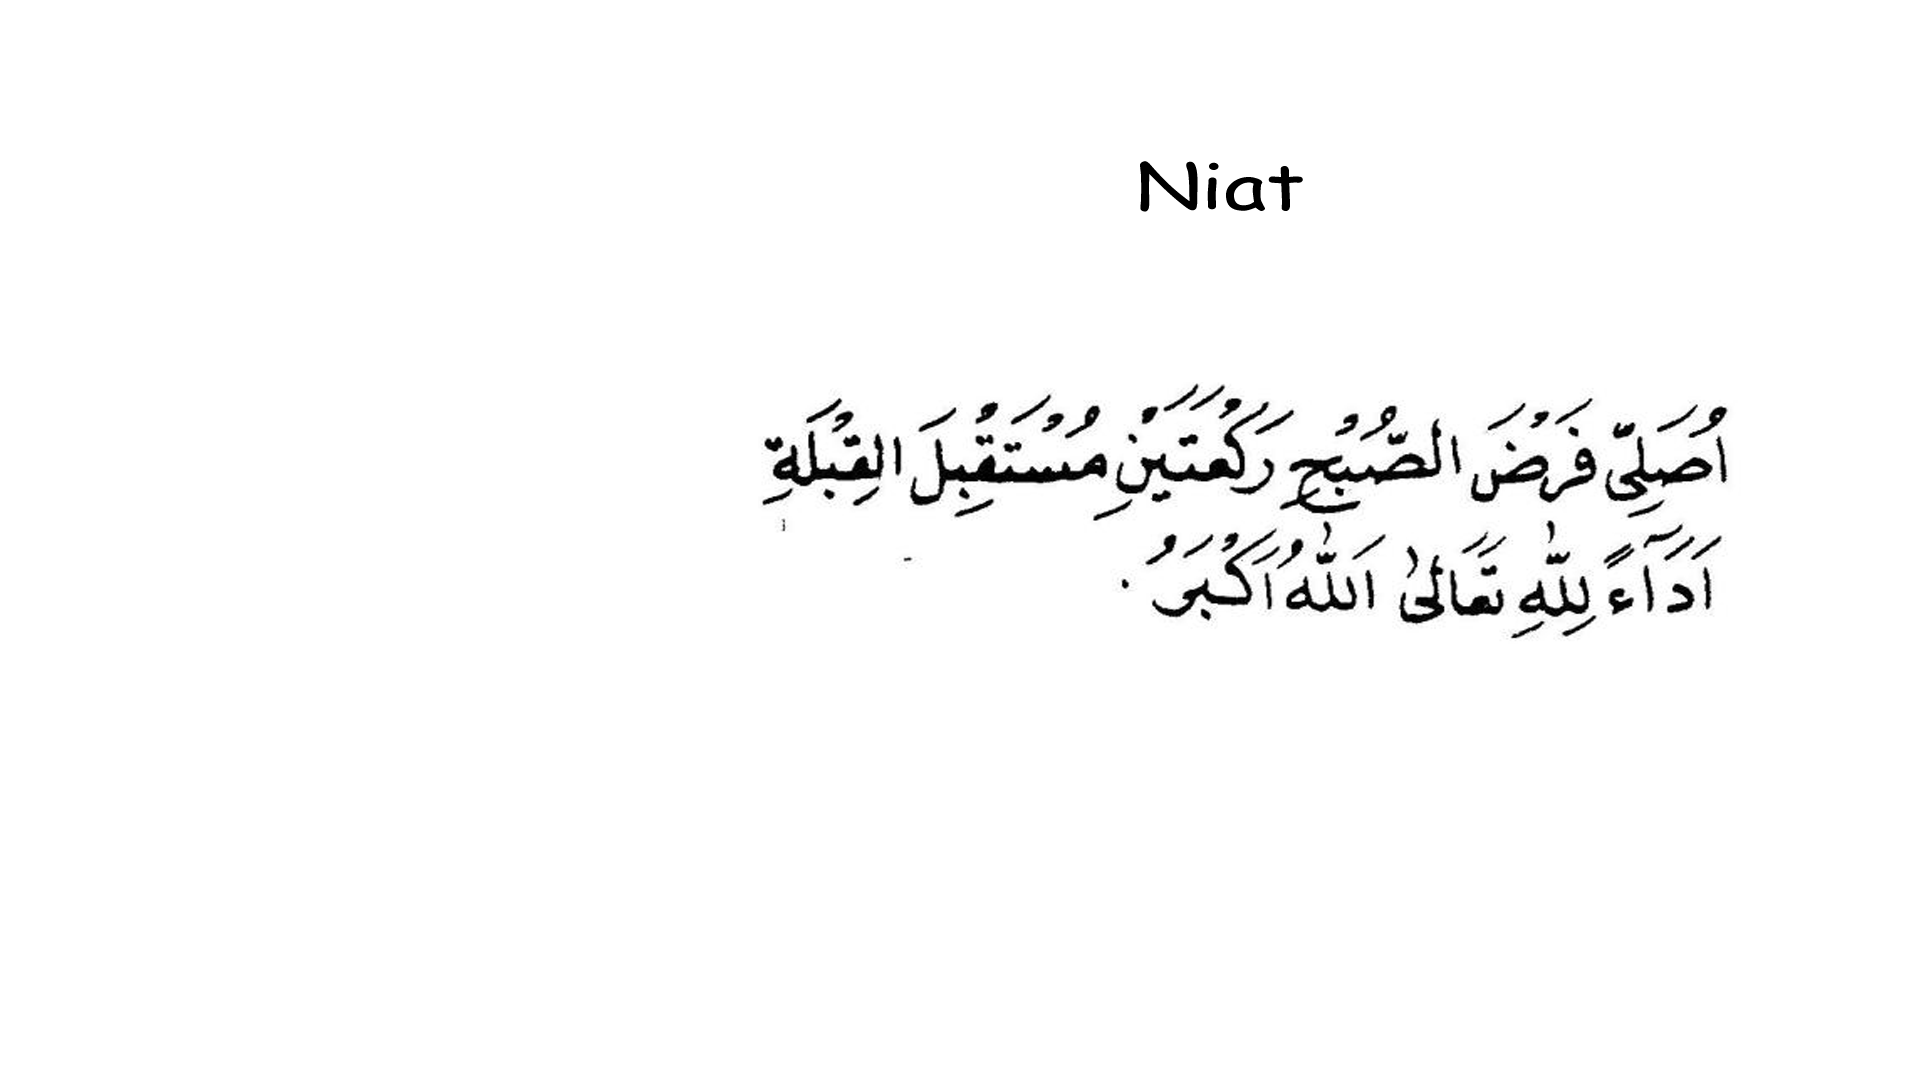 Niat
اُصَلِّىْ فَرْضَ الصُّبْحِ رَكْعَتَيْنِ مُسْتَقْبِلَ الْقِبْلَةِ
اَدَآءً لِلّٰهِ تَعَالىٰ اَللّٰهُ اَكْبَرُ .